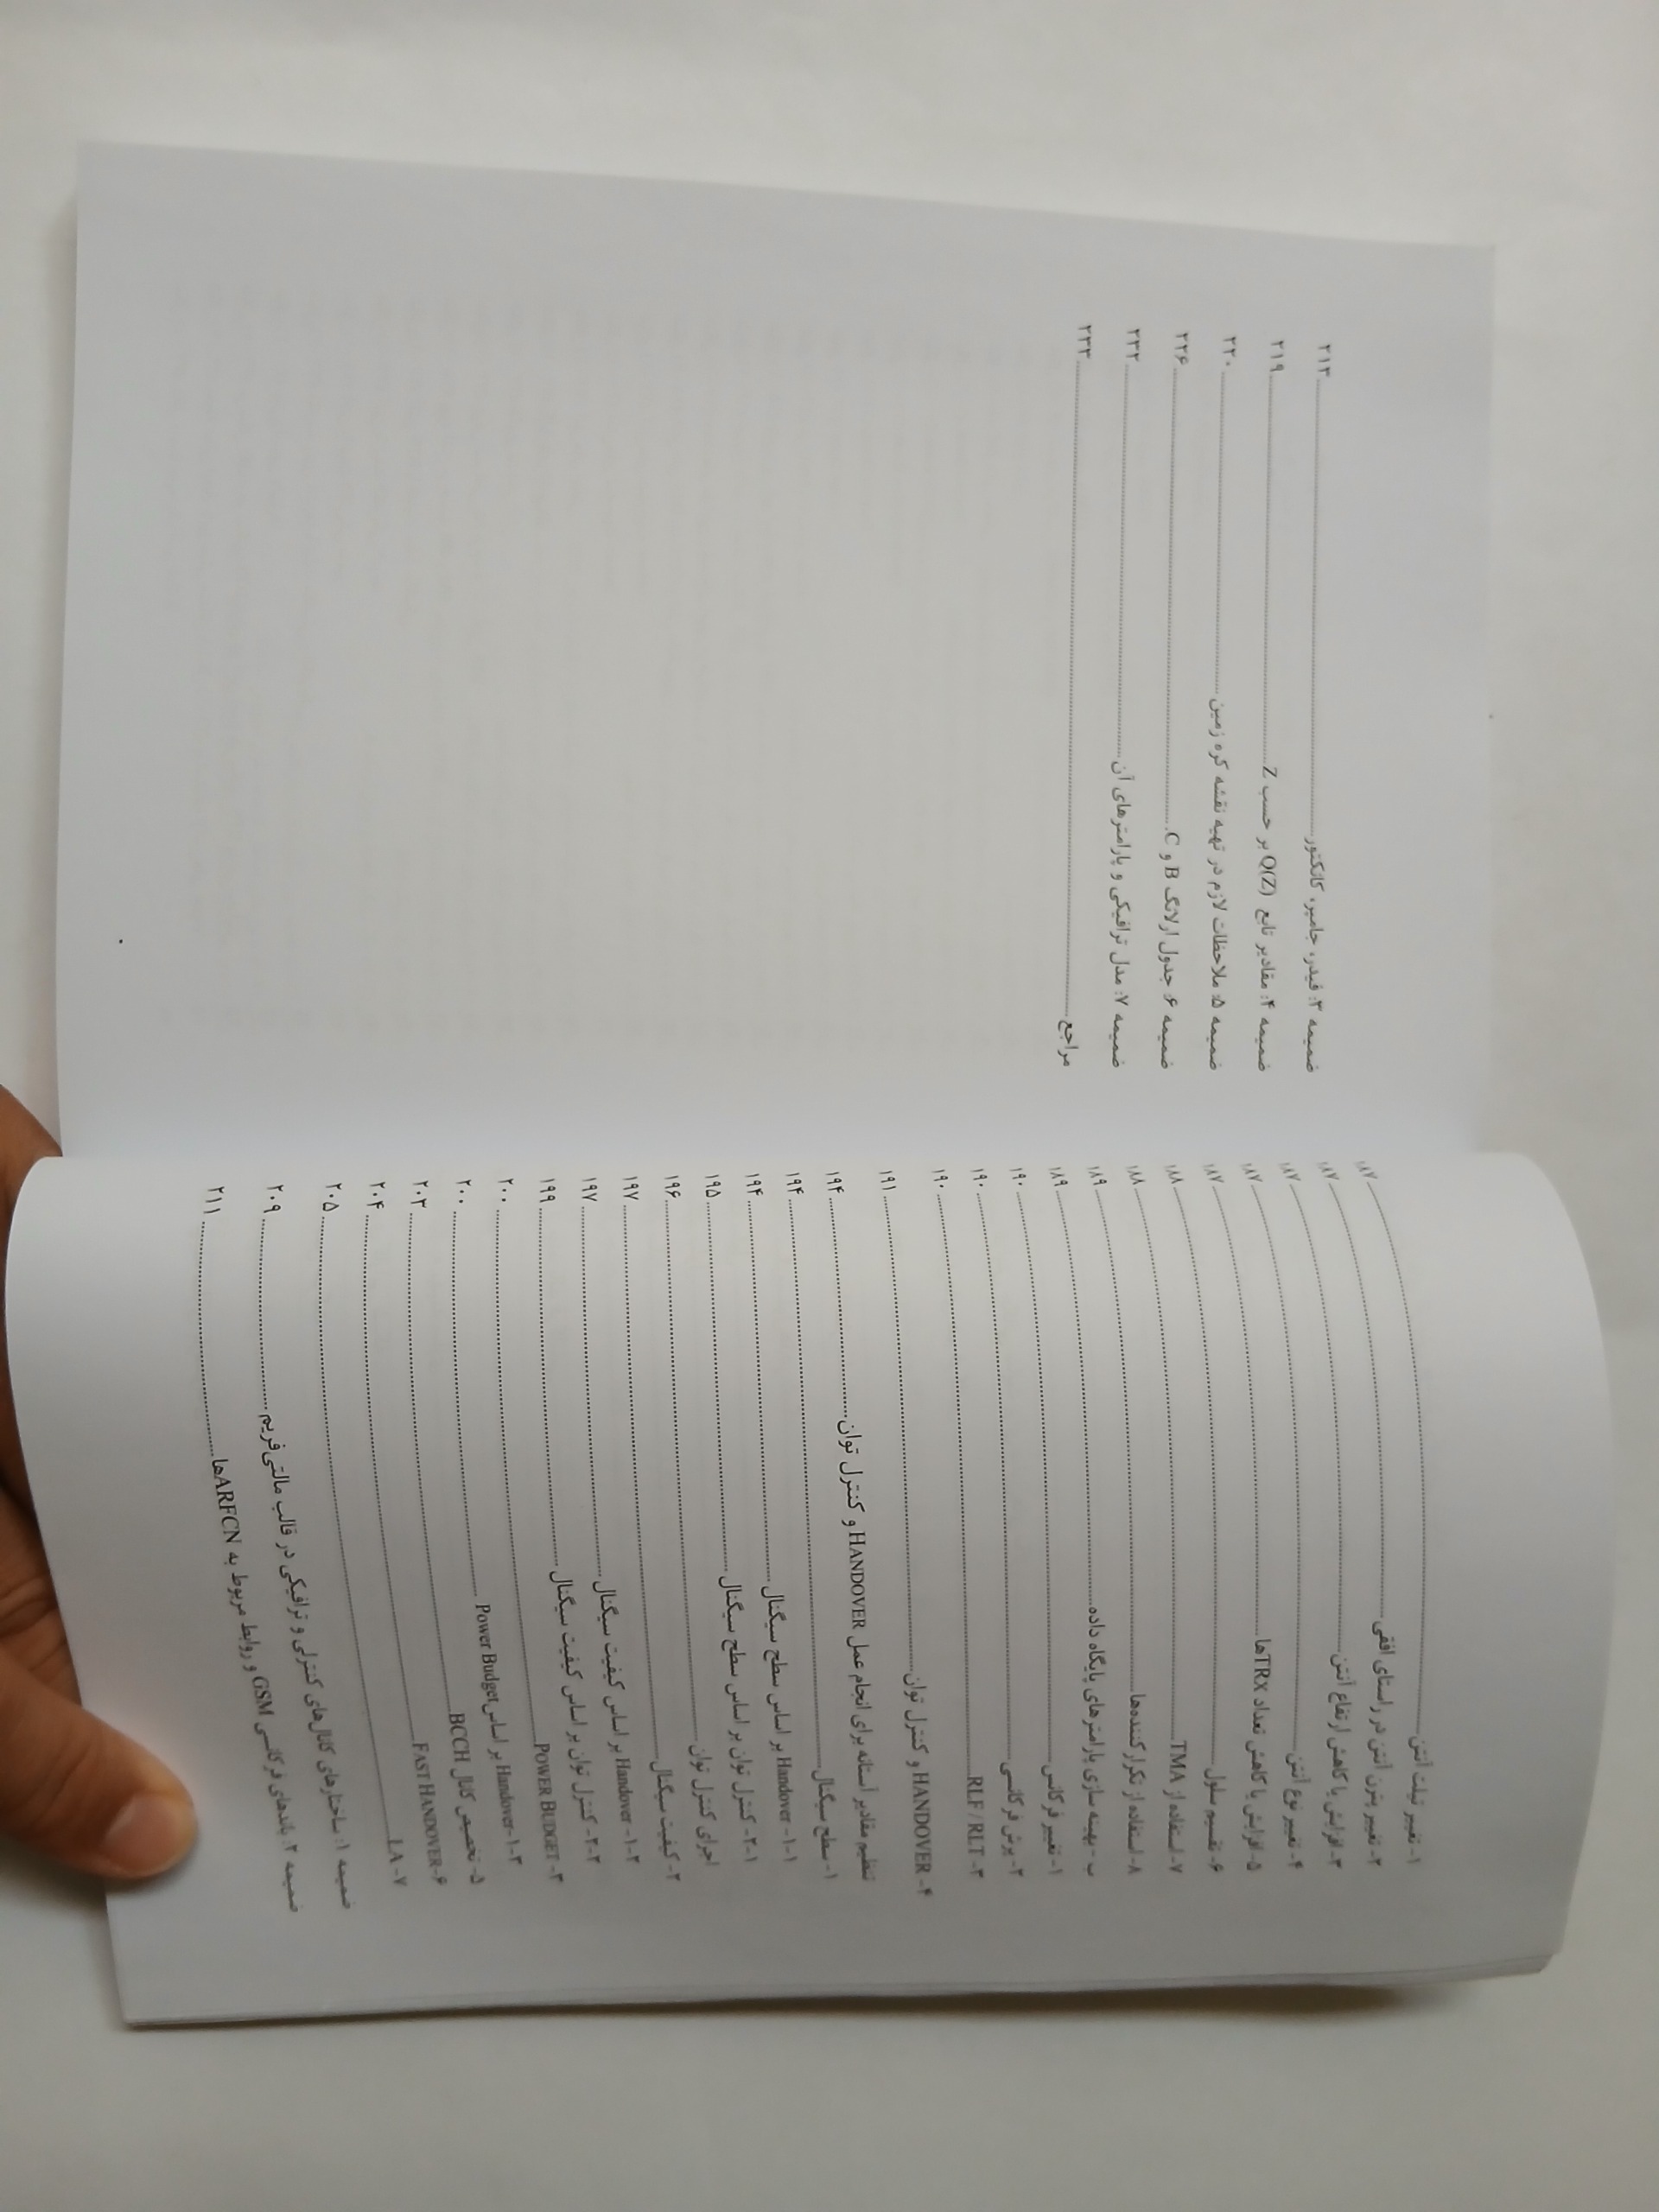 ۱- تغییر تیلت آنتن ۱۸۷
۲- تغییر پترن آنتن در راستای افقی ۱۸۷
۳- افزایش یا کاهش ارتفاع آنتن ۱۸۷
۴- تغییر نوع آنتن ۱۸۷
۵- افزایش یا کاهش تعداد TRXها ۱۸۷
۶- تقسیم سلول ۱۸۷
۷- استفاده از TMA ۱۸۸
۸- استفاده از تکرارکننده‌ها ۱۸۸
ب- بهینه سازی پارامترهای پایگاه داده ۱۸۹
۱- تغییر فرکانس ۱۸۹
۲- پرش فرکانسی ۱۹۰
۳- RLF / RLT ۱۹۰
۴- HANDOVER و کنترل توان ۱۹۰
تنظیم مقادیر آستانه برای انجام عمل HANDOVER و کنترل توان ۱۹۱
۱- سطح سیگنال ۱۹۴
۱-۱- Handover بر اساس سطح سیگنال ۱۹۴
۲-۱- کنترل توان بر اساس سطح سیگنال ۱۹۴
اجرای کنترل توان ۱۹۵
۲- کیفیت سیگنال ۱۹۶
۱-۲- Handover بر اساس کیفیت سیگنال ۱۹۷
۲-۲- کنترل توان بر اساس کیفیت سیگنال ۱۹۷
۳- POWER BUDGET ۱۹۹
۱-۳- Handover بر اساس Power Budget ۲۰۰
۵- تخصیص کانال BCCH ۲۰۰
۶- FAST HANDOVER ۲۰۳
۷- LA ۲۰۴
ضمیمه ۱: ساختارهای کانال‌های کنترلی و ترافیکی در قالب مالتی‌فریم ۲۰۵
ضمیمه ۲: باندهای فرکانسی GSM و روابط مربوط به ARFCNها ۲۰۹
۲۱۱
ضمیمه ۳: فیدر، جامپر، کانکتور ۲۱۳
ضمیمه ۴: مقادیر تابع Q(Z) بر حسب Z ۲۱۹
ضمیمه ۵: ملاحظات لازم در تهیه نقشه کره زمین ۲۲۰
ضمیمه ۶: جدول ارلانگ B و C ۲۲۶
ضمیمه ۷: مدل ترافیکی و پارامترهای آن ۲۳۲
مراجع ۲۳۳